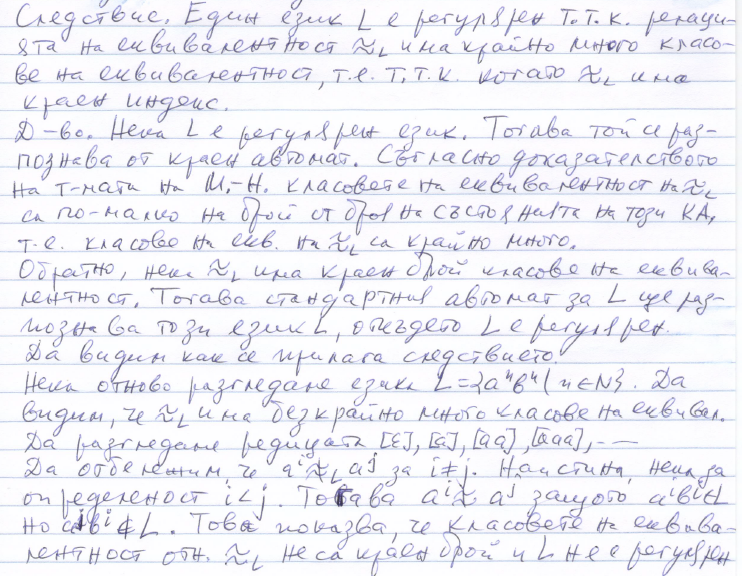 Следствие. Един език L е регулярен т.т.к. релаци-
ята на еквивалентност ≈L има крайно много класо-
ве на еквивалентност, т.е. т.т.к. когато ≈L има
краен индекс.
Д-во. Нека L е регулярен език. Тогава той се раз-
познава от краен автомат. Съгласно доказателството
на т-мата на М.-Н. класовете на еквивалентност на ≈L
са по-малко на брой от броя на състоянията на този КА,
т.е. класове на екв. на ≈L са крайно много.
Обратно, нека ≈L има краен брой класове на еквива-
лентност. Тогава стандартния автомат за L ще раз-
познава този език L, откъдето L е регулярен.
Да видим как се прилага следствието.
Нека отново разгледаме езика L={aⁿbⁿ | n∈N}. Да
видим, че ≈L има безкрайно много класове на еквивал.
Да разгледаме редицата [ε], [a], [aa], [aaa], ---
Да отбележим, че aⁱ ≉L aʲ за i≠j. Наистина, нека за
определеност i<j. Тогава aⁱ ≉ aʲ защото aⁱbⁱ∈L
но aʲbⁱ∉L. Това показва, че класовете на еквива-
лентност отн. ≈L не са краен брой и L не е регулярен